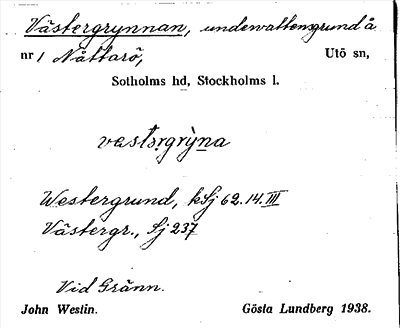 Västergrynnan, undervattensgrund å
nr 1 Nåttarö, Utö sn,
Sotholms hd, Stockholms l.
vastərgrỳna
Westergrund, kSj 62.14.III
Västergr., Sj 237
Vid Gränn.
John Westin. Gösta Lundberg 1938.